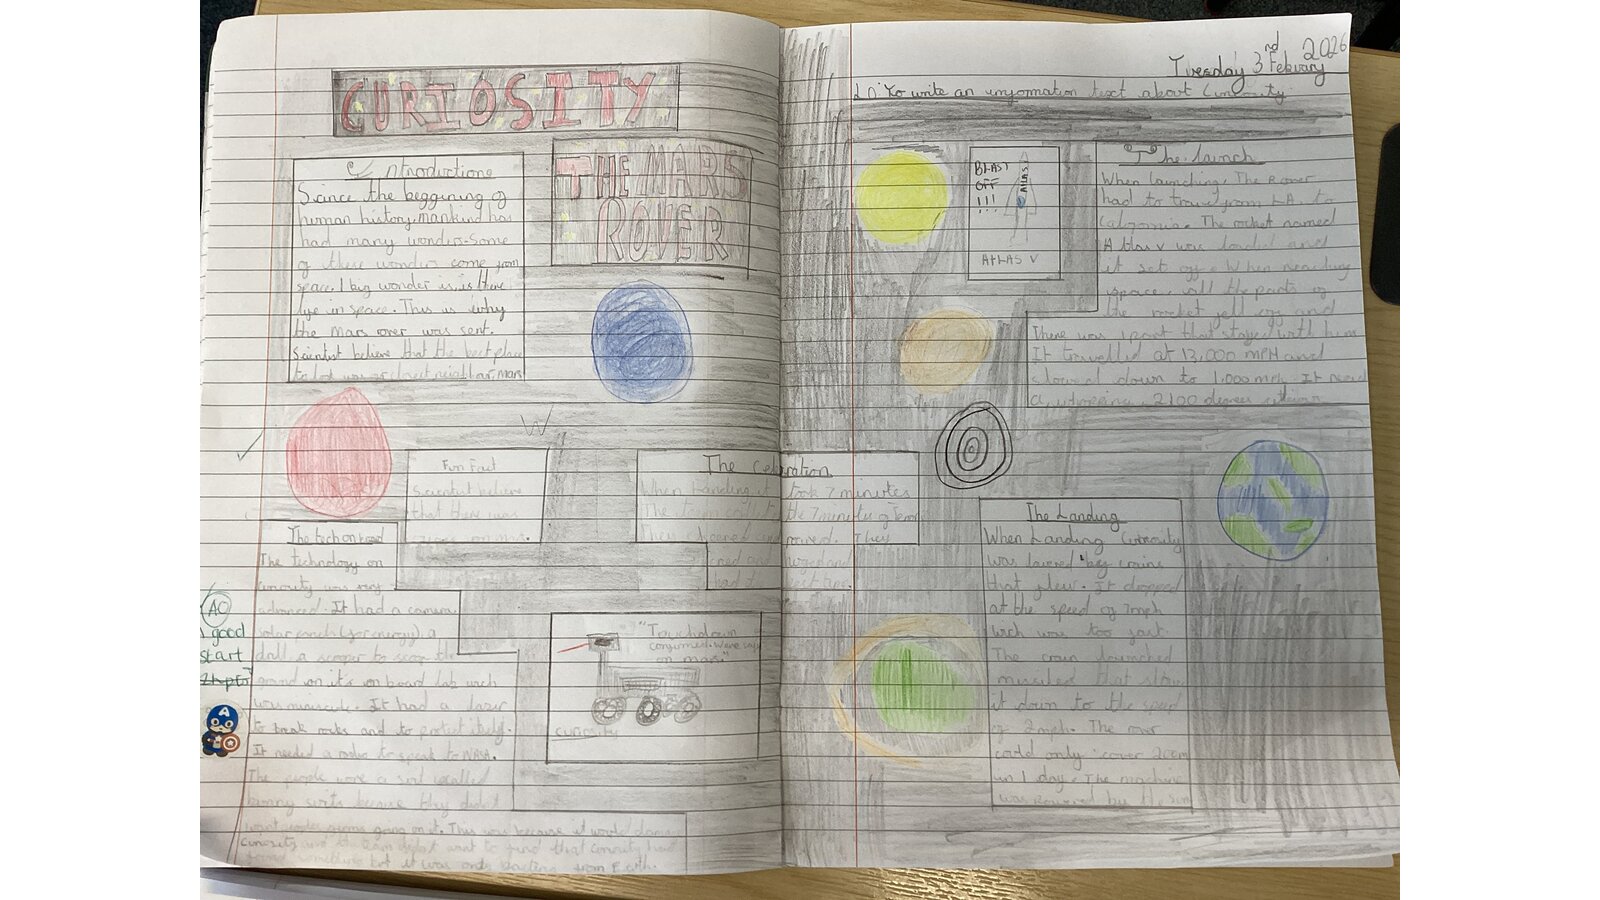 CURIOSITY
THE MARS
ROVER
Introduction
Since the beggening of
human history, mankind has
had many wonders. Some
of these wonders come from
space. 1 big wonder is, is there
life in space. This is why
the mars rover was sent.
Scientist believe that the best place
to look was our closest neighbour, mars
W
Fun Fact
Scientist believe
that there was
on mars.
The tech on board
The technology on
curiosity was very
advanced. It had a camera,
solar panels (for energy), a
drill a scooper to scoop the
ground on it's on board lab wich
was miniscule. It had a lazer
to break rocks and to protect itself.
It needed a radio to speak to NASA.
The people wore a suit called
bunny suits because they didn't
want germs going on it. This was because it would damage
curiosity and the team didn't want to find that curiosity had
found something but it was only bacteria from Earth.
AC
A good
start
"Touchdown
confirmed. We're safe
on mars."
curiosity
The celebration
When Landing it took 7 minutes
The team call the 7 minuts of Terror
They cheered and They
and hugged and
had
Tuesday 3rd Febuary 2026
LO: To write an information text about Curiosity.
BLAST
OFF
!!!
ATLAS
ATLAS V
The launch
When launching, The Rover
had to travel from L.A. to
California. The rocket named
Atlas V was loaded and
it set off. When reaching
space, all the parts of
the rocket fell off and
There was 1 part that stayed with him
It travelled at 13,000 MPH and
slowed down to 1,000 mph. It
a whopping 2100 degrees
The Landing
When Landing Curiosity
was lowered by crains
that flew. It dropped
at the speed of 7mph
wich was too fast.
The crain launched
missiles that slow
it down to the speed
of 2mph. The rover
could only cover 200m
in 1 day. The machine
was powered by the sun